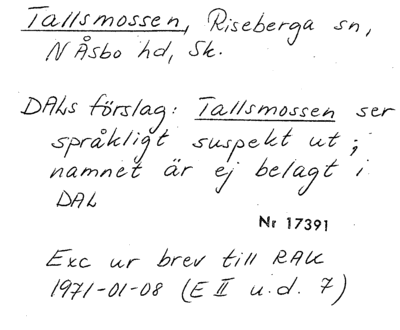 Tallsmossen, Riseberga sn,
N Åsbo hd, Sk.
DALs förslag: Tallsmossen ser
språkligt suspekt ut;
namnet är ej belagt i
DAL
Nr 17391
Exc ur brev till RAK
1971-01-08 (E II u.d. 7)